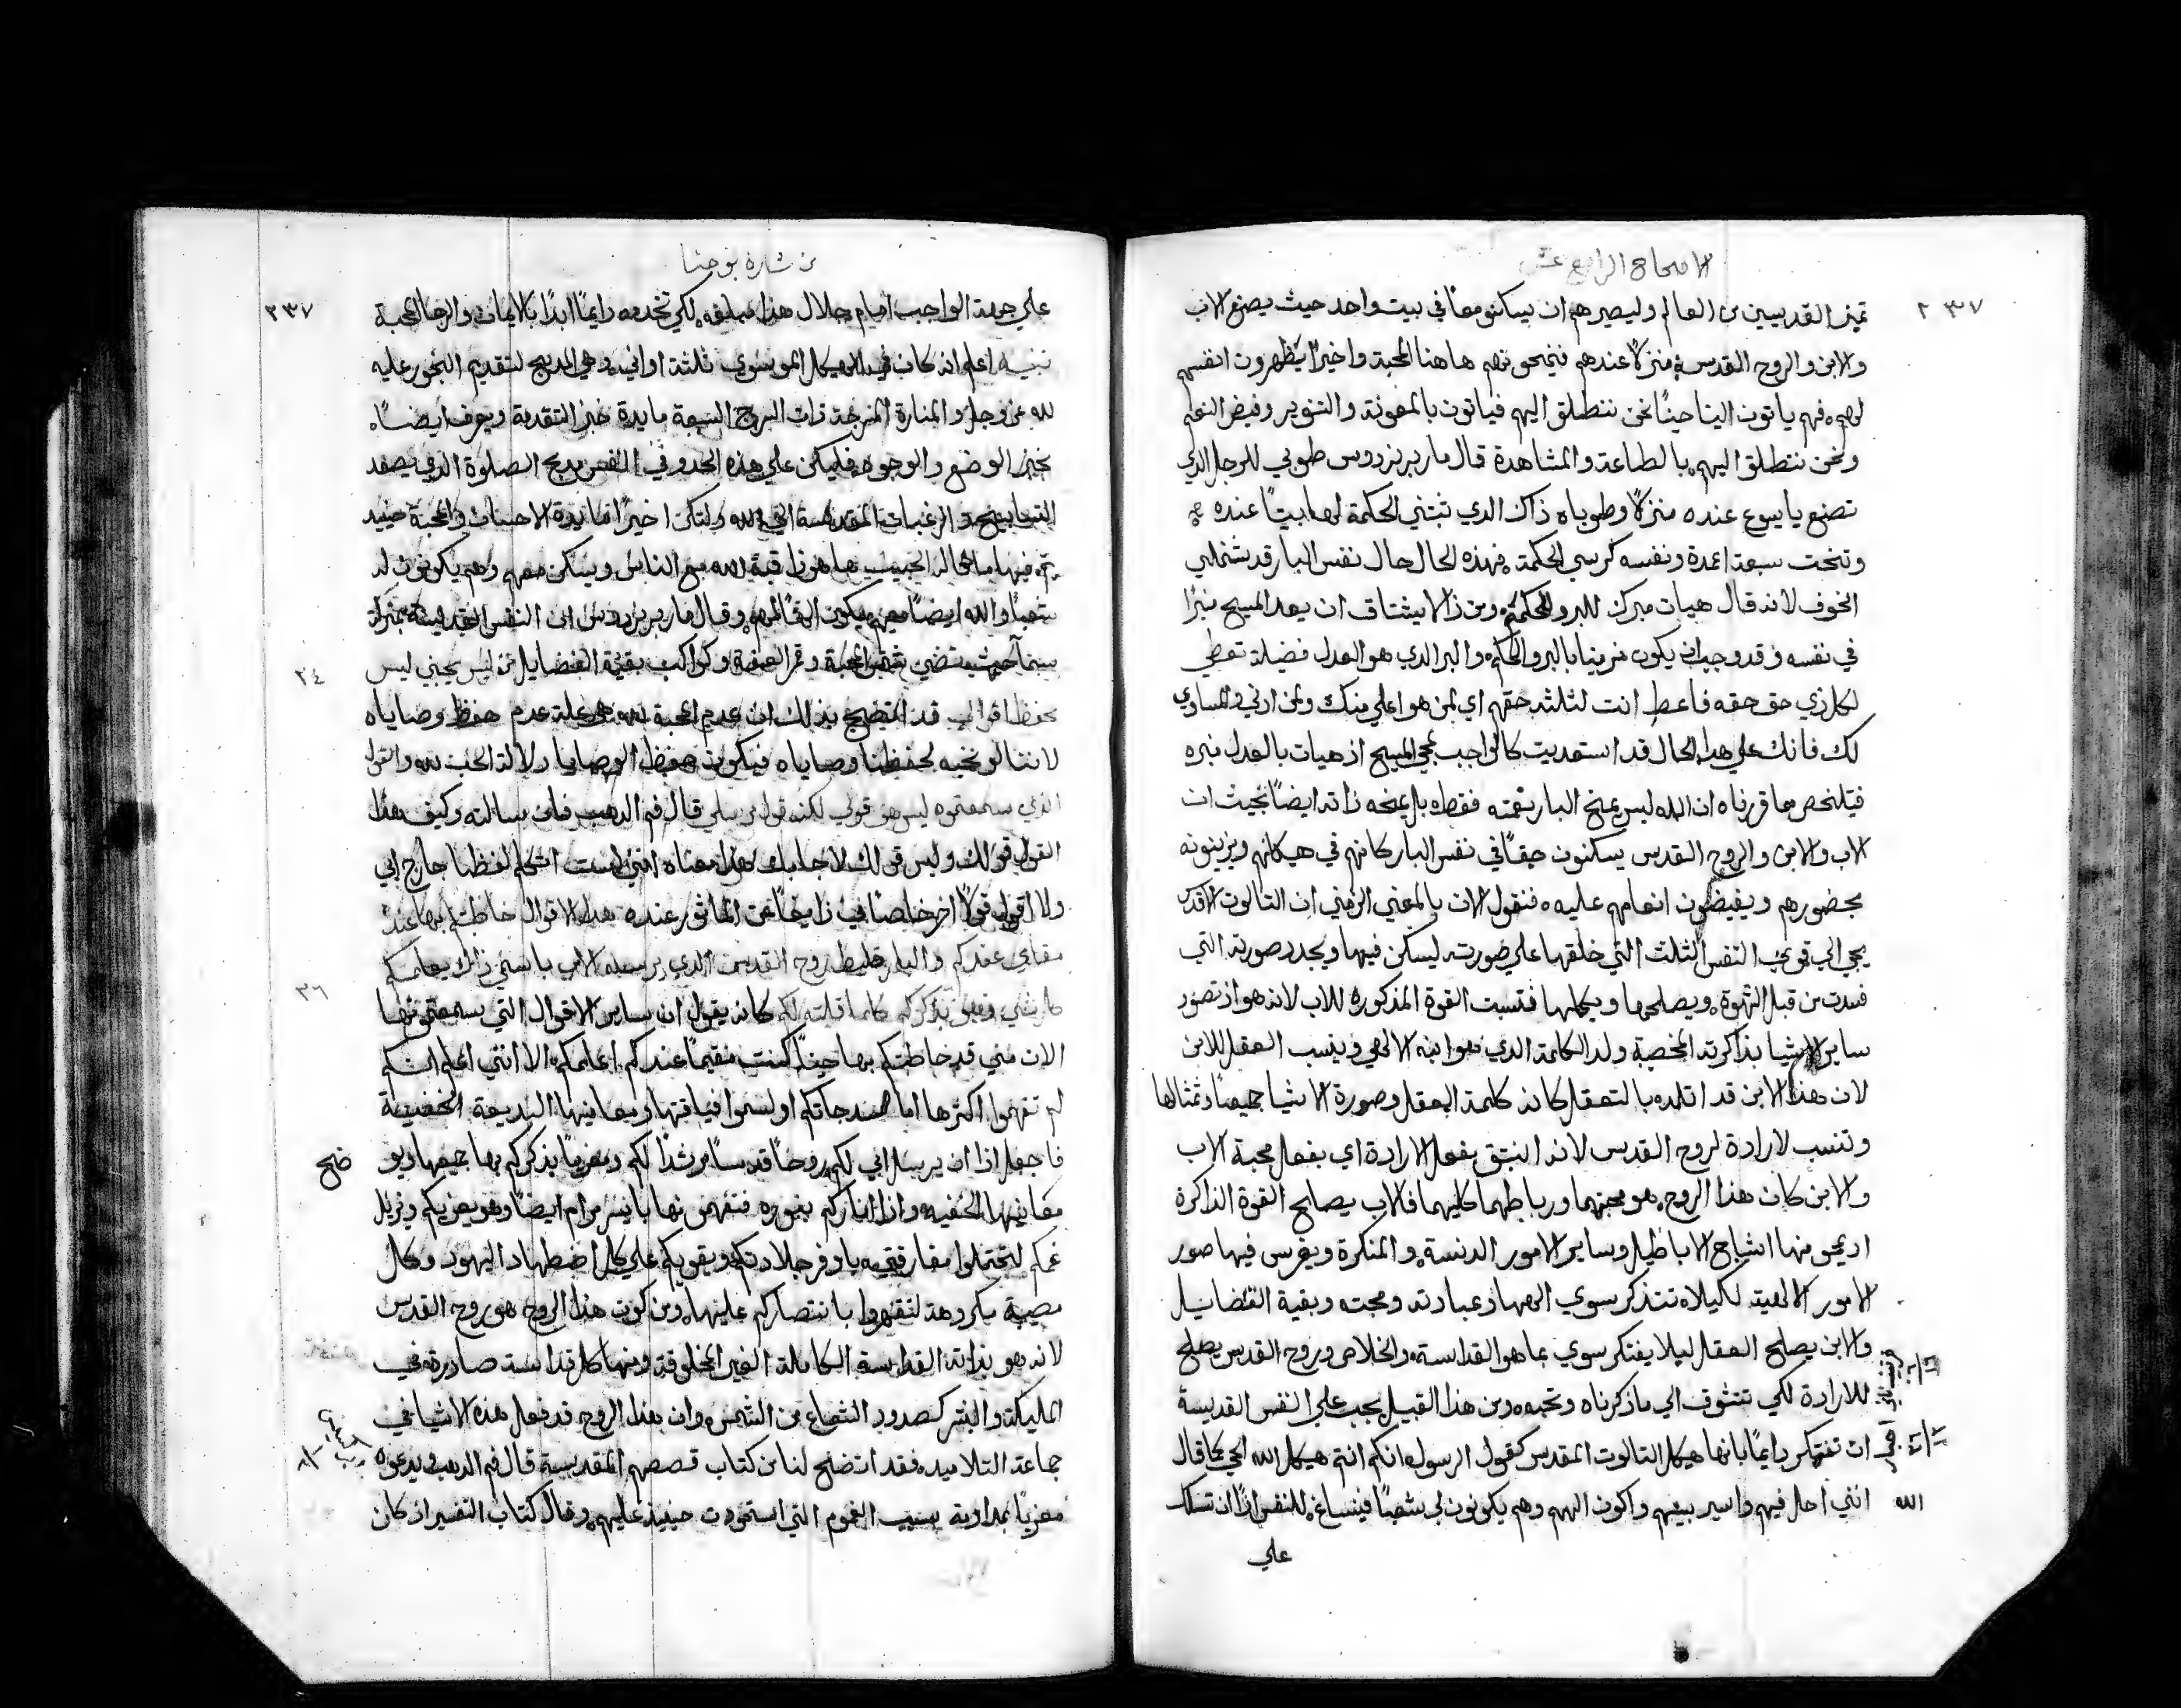 الاصحاح الرابع عشر
٢٣٧
تميز القديسين من العالم وليصيرهم ان يساكنو معًا في بيت واحد حيث يصنع الاب
والابن والروح القدس منزلًا عندهم فيمنحونهم هاهنا المحبة واخيرًا يظهرون انفسهم
لهم فهم ياتون الينا حينًا نحن ننطلق اليهم فياتون بالمعونة والتنوير وفيض النعم
ونحن ننطلق اليهم بالطاعة والمشاهدة قال مار برنردوس طوبي للرجل الذي
تصنع يا يسوع عنده منزلًا وطوباه ذاك الذي تبتني الحكمة لها بيتًا عنده
وتنحت سبعة اعمدة ونفسه كرسي الحكمة فهذه الحال حال نفس البار قد يشملني
الخوف لانه قال هيات مبرك للبر والحكمة ومن ذا لا يشتاق ان يعد المسيح منبرًا
في نفسه وقد وجب ان يكون مزينا بالبر والحكم والبر الذي هو العدل فضيلة تعطي
لكل ذي حق حقه فاعط انت لثلثة حقهم اي لمن هو اعلي منك ولمن ادني والمساوي
لك فانك علي هذا الحال قد استعديت كالواجب لمجي المسيح اذ هيات بالعدل منبره
فيتلخص مما قررناه ان الله ليس يمنح البار نعمته فقط بل يمنحه ذاته ايضًا بحيث ان
الاب والابن والروح القدس يسكنون حقًا في نفس البار كانهم في هيكلهم ويزينونه
بحضورهم ويفيضون انعامهم عليه فنقول الان بالمعني الرمزي ان الثالوث الاقدس
يجي الي قوي النفس الثلث التي خلقها علي صورته ليسكن فيها ويجدد صورته التي
فسدت من قبل الشهوة ويصلحها ويكملها فتنسب القوة المذكوره للاب لانه هو اذ تصور
ساير الاشيا بذاكرته المخصبة ولد الكلمة الذي هو ابنه الالهي وينسب العقل للابن
لان هذا الابن قد اتلده بالتعقل كانه كلمة العقل وصورة الاشيا جميعًا وتمثالها
وتنسب لارادة لروح القدس لانه انبثق بفعل الارادة اي بفعل محبة الاب
والابن كان هذا الروح هو محبتهما ورباطهما كليهما فالاب يصلح القوة الذاكرة
اذ يمحو منها اشباح الاباطيل وساير الامور الدنسة والمنكرة ويغرس فيها صور
الامور الالهية لكيلا تتذكر سوي الهها وعبادته ومحبته وبقية الفضايل
والابن يصلح العقل ليلا يفتكر سوي بما هو القداسة والخلاص وروح القدس يصلح
للارادة لكي تتشوق الي ما ذكرناه وتحبه ومن هذا القبيل يجب علي النفس القديسة
ان تفتكر دايمًا بانها هيكل الثالوث المقدس كقول الرسول انكم انتم هيكل الله الحي كما قال
الله انني احل فيهم واسير بينهم واكون الههم وهم يكونون لي شعبًا فينساغ للنفس اذًا ان تسلك
علي
من بشارة يوحنا
٢٣٧
علي جهة الواجب امام جلال هذا لكي تخدمه دايمًا ابدًا بالايمان والرجا والمحبة
تنبيه اعلم انه كان في الهيكل الموسوي ثلثة اواني وهي المذبح لتقديم البخور عليه
لله عز وجل والمنارة ذات السرج السبعة مايدة خبز التقدمة ويعرف ايضًا
بخبز الوضع والوجوه فليكن علي هذه الحذو في النفس مذبح الصلوة الذي يصعد
التسابيح والرغبات المقدسة الي الله ولتكن اخيرًا مايدة الاحسان والمحبة حينيذ
يتم فيها ما قاله الحبيب ها هوذا قبة الله مع الناس ويسكن معهم وهم يكونون له
شعبًا والله ايضًا معهم يكون الهًا لهم وقال مار برنردوس ان النفس القديسة بمنزلة
سما حيث تضي شمس المحبة وقمر العفة وكواكب بقية الفضايل من ليس يحبني ليس
٢٤
يحفظ اقوالي قد اتضح بذلك ان عدم المحبة لله هي علة عدم حفظ وصاياه
لاننا لو نحبه لحفظنا وصاياه فيكون حفظ الوصايا دلالة الحب لله والقول
الذي سمعتموه ليس هو قولي لكنه قول مرسلي قال فم الدهب فان سالته وكيف هذا
القول قولك وليس قولك لاجابك هذا معناه انني لست اتكلم لفظا خارج ابي
ولا اقول قولًا اخر خاصًا بي زايغًا عن الماثور عنده هذه الاقوال خاطبتكم بها عند
مقامي عندكم والبارقليط روح القدس الذي يرسله الاب باسمي ذاك يعلمكم
٢٦
كل شي وهو يذكركم كلما قلته لكم كانه يقول ان ساير الاقوال التي سمعتموها
الان مني قد خاطبتكم بها حينًا كنت مقيمًا عندكم اعلمكم الا انني اعلم انكم
لم تفهموا اكثرها اما ولسمو افياقها ومعانيها البديعة الخفية
فاجعل اذا ان يرسل ابي لكم روحًا قدسًا مرشدًا لكم ومعزيًا يذكركم بها جميعها ويو
ضح
معانيها الخفيه واذا انار كم بنوره فتفهمونها بايسر مرام ايضًا وهو يعزيكم ويزيل
غمكم لتحتملوا مفارقتي باوفر جلادتكم ويقويكم علي كل اضطهاد اليهود وكل
مصيبة مكروهة لتقهروا بانتصاركم عليها ومن كون هذا الروح هو روح القدس
لانه هو بذاته القداسة الكاملة الغير المخلوقة ومنها كل قداسة صادرة في
المليكة والبشر كصدور الشعاع من الشمس وان هذا الروح قد فعل هذه الاشيا في
جماعة التلاميد فقد اتضح لنا من كتاب قصصهم المقدسة قال فم الدهب ويدعوه
معزيًا بمداوته بسبب الغموم التي استحوذت حينيذ عليهم وقال كتاب التفسير اذ كان